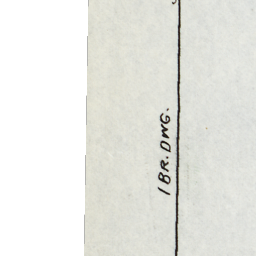 1 BR. DWG.